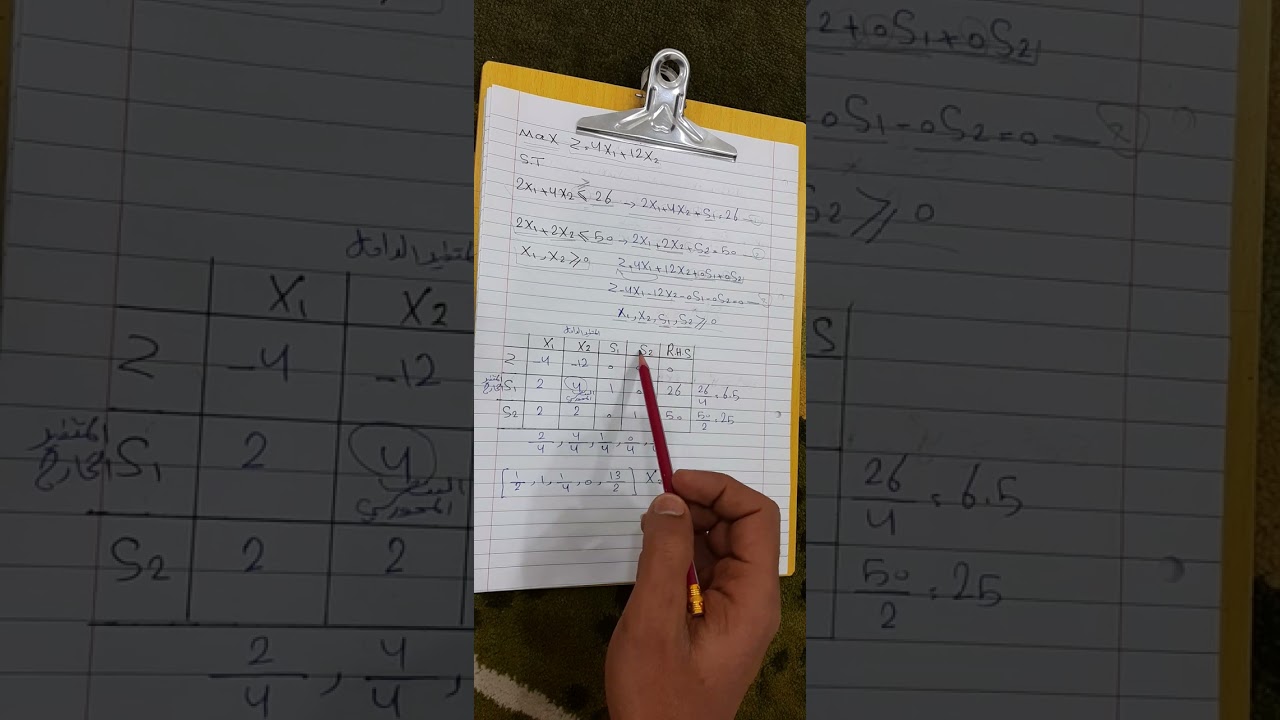 max Z=4X1+12X2
S.T
2X1+4X2 ≤ 26 → 2X1+4X2+S1=26 —
2X1+2X2 ≤ 50 → 2X1+2X2+S2=50 — 2
X1,X2 ≥ 0 Z=4X1+12X2+0S1+0S2
Z-4X1-12X2-0S1-0S2=0 —
X1,X2,S1,S2 ≥ 0
المتغير الداخل
X1 X2 S1 S2 R.H.S
Z -4 -12 0 0
المتغير الخارج S1 2 4 1 0 26 26/4=6.5
العنصر المحوري
S2 2 2 0 1 50 50/2=25
2/4, 4/4, 1/4, 0/4,
[1/2, 1, 1/4, 0, 13/2] X2